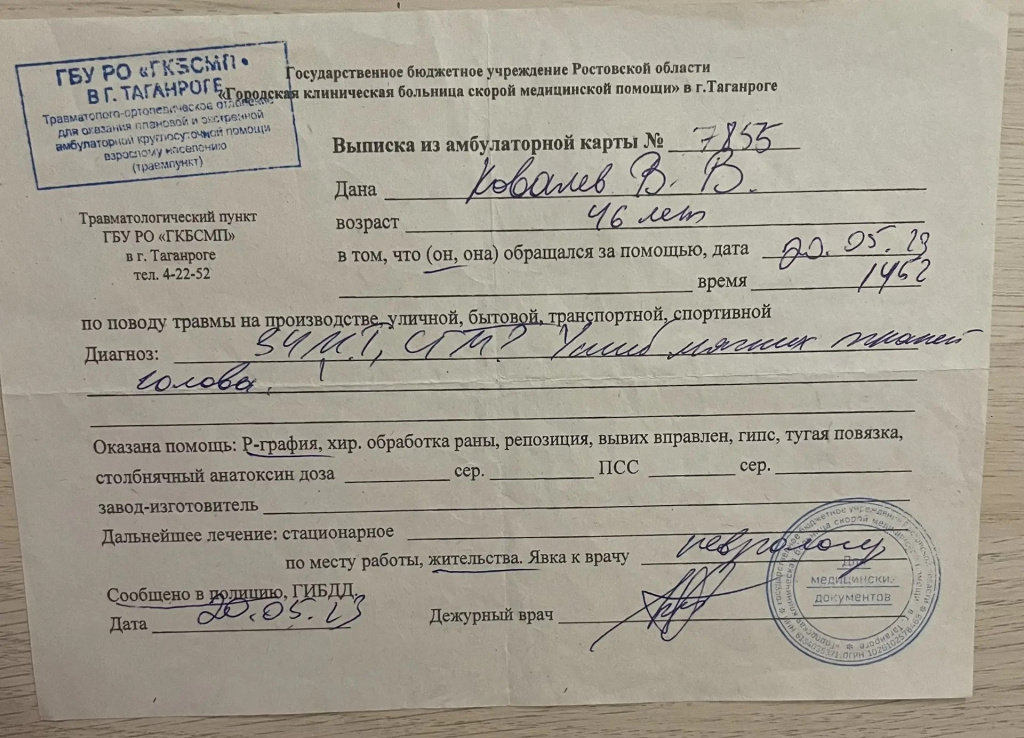 ГБУ РО «ГКБСМП»
В Г. ТАГАНРОГЕ
Травматолого-ортопедическое отделение
для оказания плановой и экстренной
амбулаторной круглосуточной помощи
взрослому населению
(травмпункт)
Государственное бюджетное учреждение Ростовской области
«Городская клиническая больница скорой медицинской помощи» в г.Таганроге
Выписка из амбулаторной карты № 7855
Травматологический пункт
ГБУ РО «ГКБСМП»
в г. Таганроге
тел. 4-22-52
Дана Ковалев В. В.
возраст 46 лет
в том, что (он, она) обращался за помощью, дата 20.05.23
время 1452
по поводу травмы на производстве, уличной, бытовой, транспортной, спортивной
Диагноз: ЗЧМТ, СГМ? Ушиб мягких тканей
головы.
Оказана помощь: Р-графия, хир. обработка раны, репозиция, вывих вправлен, гипс, тугая повязка,
столбнячный анатоксин доза сер. ПСС сер.
завод-изготовитель
Дальнейшее лечение: стационарное
по месту работы, жительства. Явка к врачу неврологу
Сообщено в полицию, ГИБДД,
Дата 20.05.23 Дежурный врач
Для
медицинских
документов